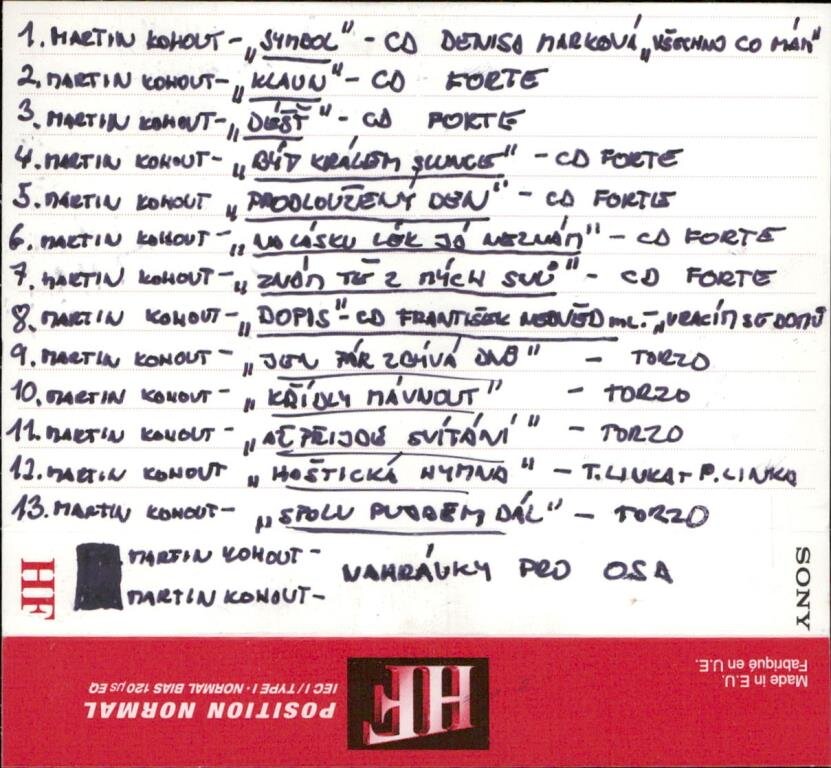 1. MARTIN KOHOUT - „SYMBOL" - CD DENISA MARKOVÁ „VŠECHNO CO MÁM"
2. MARTIN KOHOUT - „KLAUN" - CD FORTE
3. MARTIN KOHOUT - „DÉŠŤ" - CD FORTE
4. MARTIN KOHOUT - „BÝT KRÁLEM SLUNCE" - CD FORTE
5. MARTIN KOHOUT „PRODLOUŽENÝ DEN" - CD FORTE
6. MARTIN KOHOUT - „NA LÁSKU LÉK JÁ NEZNÁM" - CD FORTE
7. MARTIN KOHOUT - „ZNÁM TĚ Z MÝCH SNŮ" - CD FORTE
8. MARTIN KOHOUT - „DOPIS" - CD FRANTIŠEK NEDVĚD ML. - „VRACÍM SE DOMŮ
9. MARTIN KOHOUT - „JEN PÁR ZBÝVÁ DNŮ" - TORZO
10. MARTIN KOHOUT - „KŘÍDLY MÁVNOUT" - TORZO
11. MARTIN KOHOUT - „AŽ PŘIJDE SVÍTÁNÍ" - TORZO
12. MARTIN KOHOUT „HOŠTICKÁ HYMNA" - T. LINKA + P. LINKA
13. MARTIN KOHOUT - „SPOLU PUJDEM DÁL" - TORZO
MARTIN KOHOUT -
MARTIN KOHOUT -
NAHRÁVKY PRO OSA
HF
SONY
Made in E.U.
Fabriqué en U.E.
HF
POSITION NORMAL
IEC I / TYPE I · NORMAL BIAS 120 µs EQ